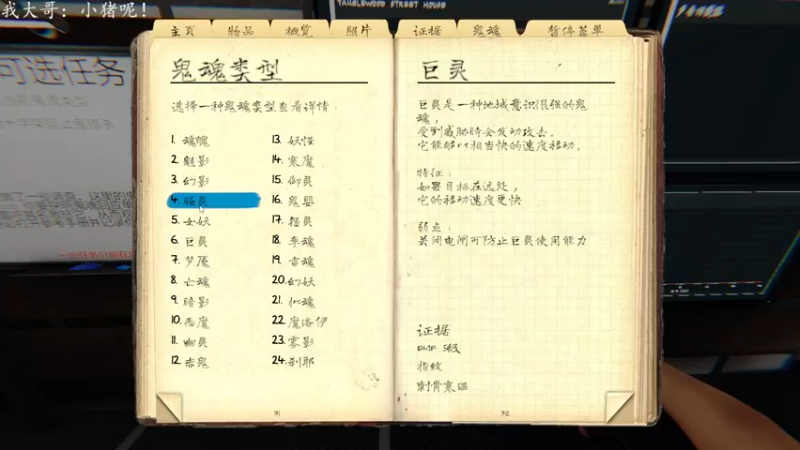 我大哥：小猪呢！
TANGLEWOOD STREET HOUSE
主页 物品 概览 照片 证据 鬼魂 暂停菜单
可选任务
鬼魂类型
选择一种鬼魂类型查看详情：
1. 魂魄
2. 魅影
3. 幻影
4. 骚灵
5. 女妖
6. 巨灵
7. 梦魇
8. 亡魂
9. 暗影
10. 恶魔
11. 幽灵
12. 赤鬼
13. 妖怪
14. 寒魔
15. 御灵
16. 鬼婴
17. 怨灵
18. 孪魂
19. 雷魂
20. 幻妖
21. 拟魂
22. 魔洛伊
23. 雾影
24. 刹耶
31
巨灵
巨灵是一种地域意识很强的鬼
魂，
受到威胁时会发动攻击。
它能够以相当快的速度移动。
特征：
如果目标在远处，
它的移动速度更快
弱点：
关闭电闸可防止巨灵使用能力
证据
EMF 5级
指纹
刺骨寒温
32